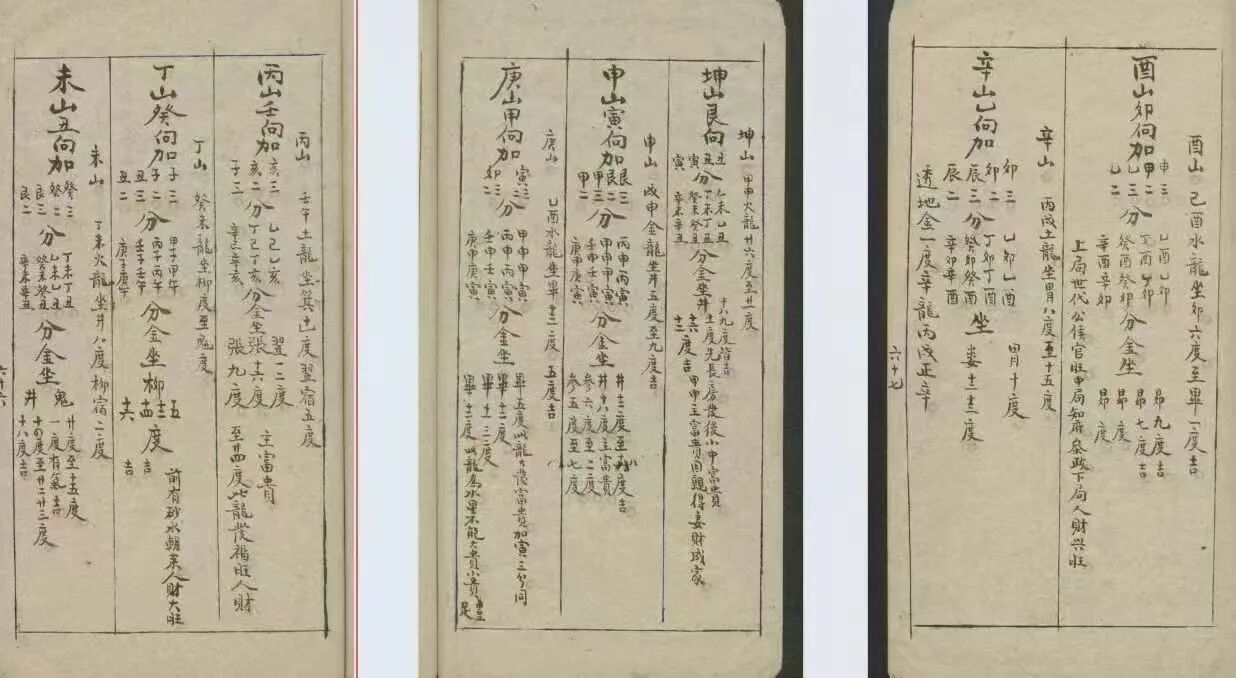 丙山 壬午土龍坐其十七度翌宿五度
丙山壬向加
亥三
亥二
子三
分
乙巳乙亥
丁巳丁亥
辛巳辛亥
分金坐
翌一二度
張六度
張九度
主富貴
至廿四度此龍發福旺人財
丁山 癸未龍坐柳度至鬼度
丁山癸向加
子三
子二
丑三
丑二
分
甲子甲午
丙午丙午
壬午壬午
庚子庚午
分金坐柳
五
十三
十四
十六
度
吉
吉
前有砂水朝来人財大旺
未山 丁未火龍坐井八度柳宿二度
未山丑向加
癸三
癸二
艮三
艮二
分
丁未丁丑
乙未乙丑
癸未癸丑
辛未辛丑
分金坐
鬼
井
廿度至十五度
一度有氣吉
十四度至廿二廿三度
十八度吉
六十六
坤山 甲申火龍廿六度至廿一度
坤山艮向加
丑三
丑二
寅三
寅
分
乙未乙丑
丁未丁丑
癸未癸丑
辛未辛丑
分金坐井
十八九度皆吉
十二度先長房發後小中富貴
十六度吉
十三
甲甲主富貴因親得妻財成家
申山 戊申金龍坐井五度至九度吉
申山寅向加
艮三
艮二
甲三
甲二
分
丙申丙寅
甲申甲寅
壬申壬寅
庚申庚寅
分金坐
井十八度主富貴
参六度至二度
参五度至七度
庚山 乙酉水龍坐畢十三二度 五度吉
庚山甲向加
寅三
寅二
卯三
卯二
分
甲申甲寅
丙申丙寅
壬申壬寅
庚申庚寅
分金坐
畢五度此龍大發富貴加寅三分同
畢十一三二度
畢十二度此龍為水星不能大貴小貴
豊足
酉山 己酉水龍坐卯六度至畢一度吉
酉山卯向加
申三
甲二
乙三
乙二
分
乙酉乙卯
丁酉丁卯
癸酉癸卯
辛酉辛卯
分金坐
昴九度吉
昴七度吉
昴度
昴度
上局世代公侯官旺中局知府叅政下局人財兴旺
辛山 丙戌土龍坐胃八度至十五度
辛山乙向加
卯三
卯二
辰三
辰二
分
乙卯乙酉
丁卯丁酉
癸卯癸酉
辛卯辛酉
坐
胃十度
婁十三度
透地金一度辛龍丙戌正辛
六十七